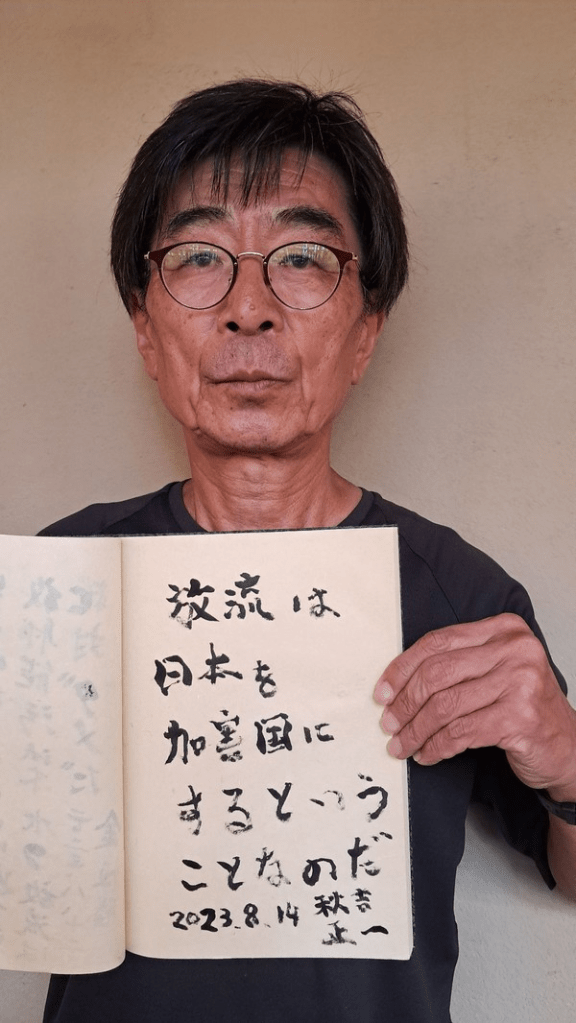 放流は
日本を
加害国に
するという
ことなのだ
2023.8.14 秋吉
正一